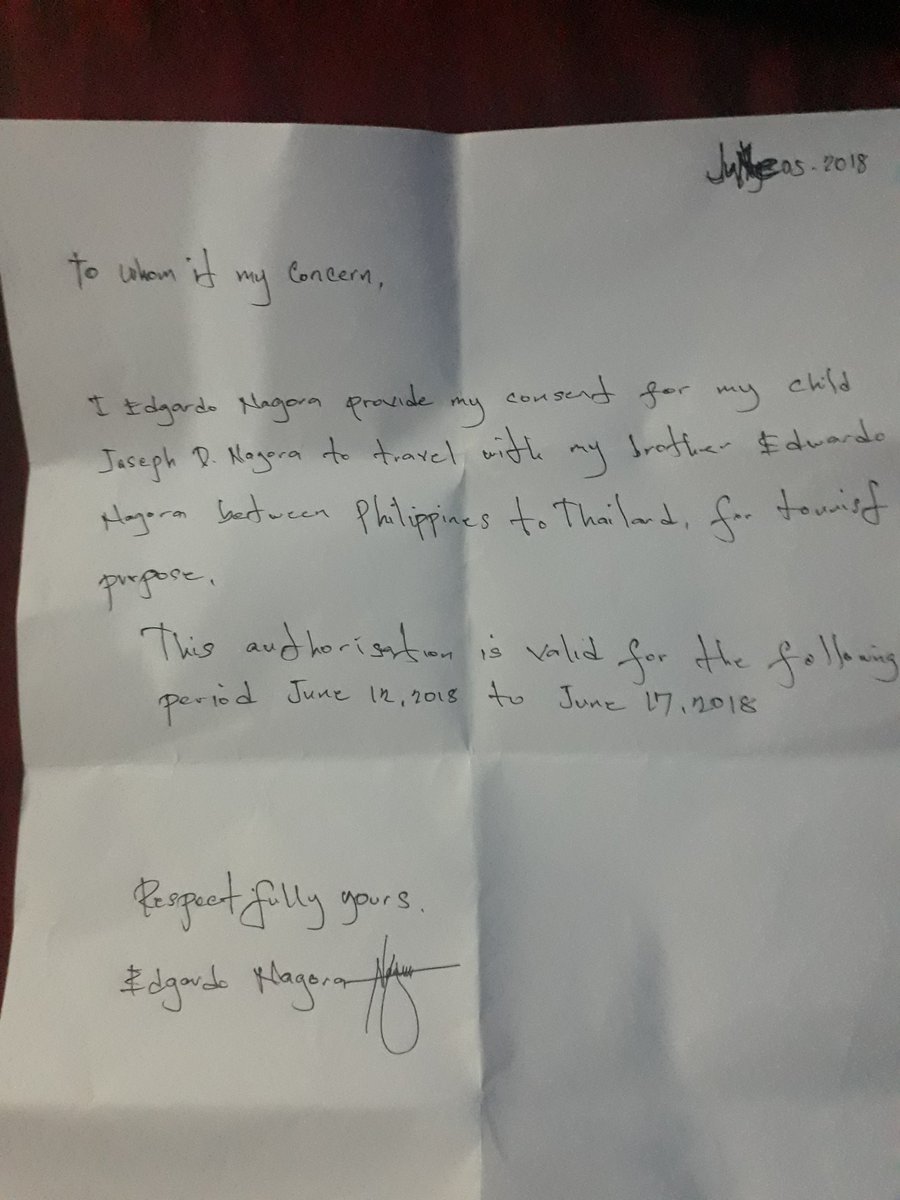 05.2018
To whom it my concern,
I Edgardo Nagora provide my consent for my child
Joseph D. Nagora to travel with my brother Edwardo
Nagora between Philippines to Thailand, for tourist
purpose.
This authorisation is valid for the following
period June 12, 2018 to June 17, 2018
Respectfully yours.
Edgardo Nagora